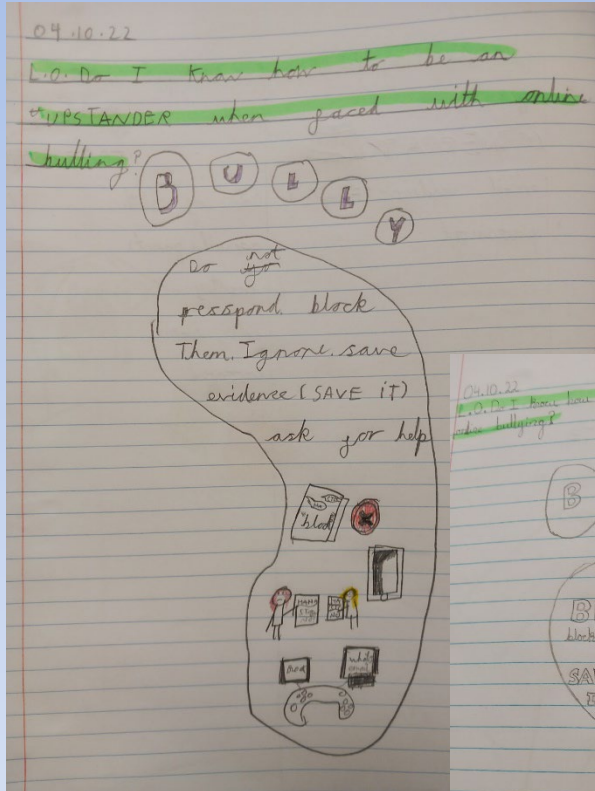 04.10.22
L.O. Do I know how to be an
UPSTANDER when faced with online
bulling?
BULLY
Do not
resspond. block
Them. Ignore. save
evidence (SAVE iT)
ask for help
block
04.10.22
L.O. Do I know how
online bullying?
B
B
block
SA